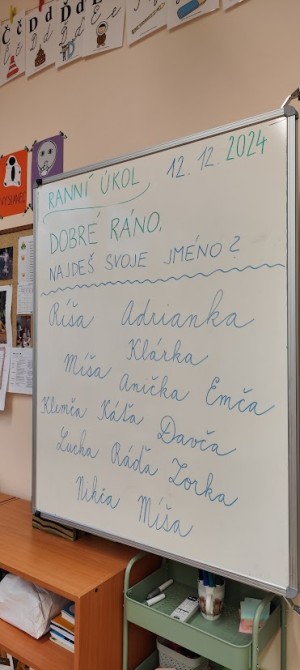 Č č D d Ď ď E e
RANNÍ ÚKOL 12. 12. 2024
DOBRÉ RÁNO,
NAJDEŠ SVOJE JMÉNO?
Ríša Adrianka
Klárka
Míša Anička Emča
Klemča Káťa Davča
Lucka Ráďa Zorka
Nikča Míša